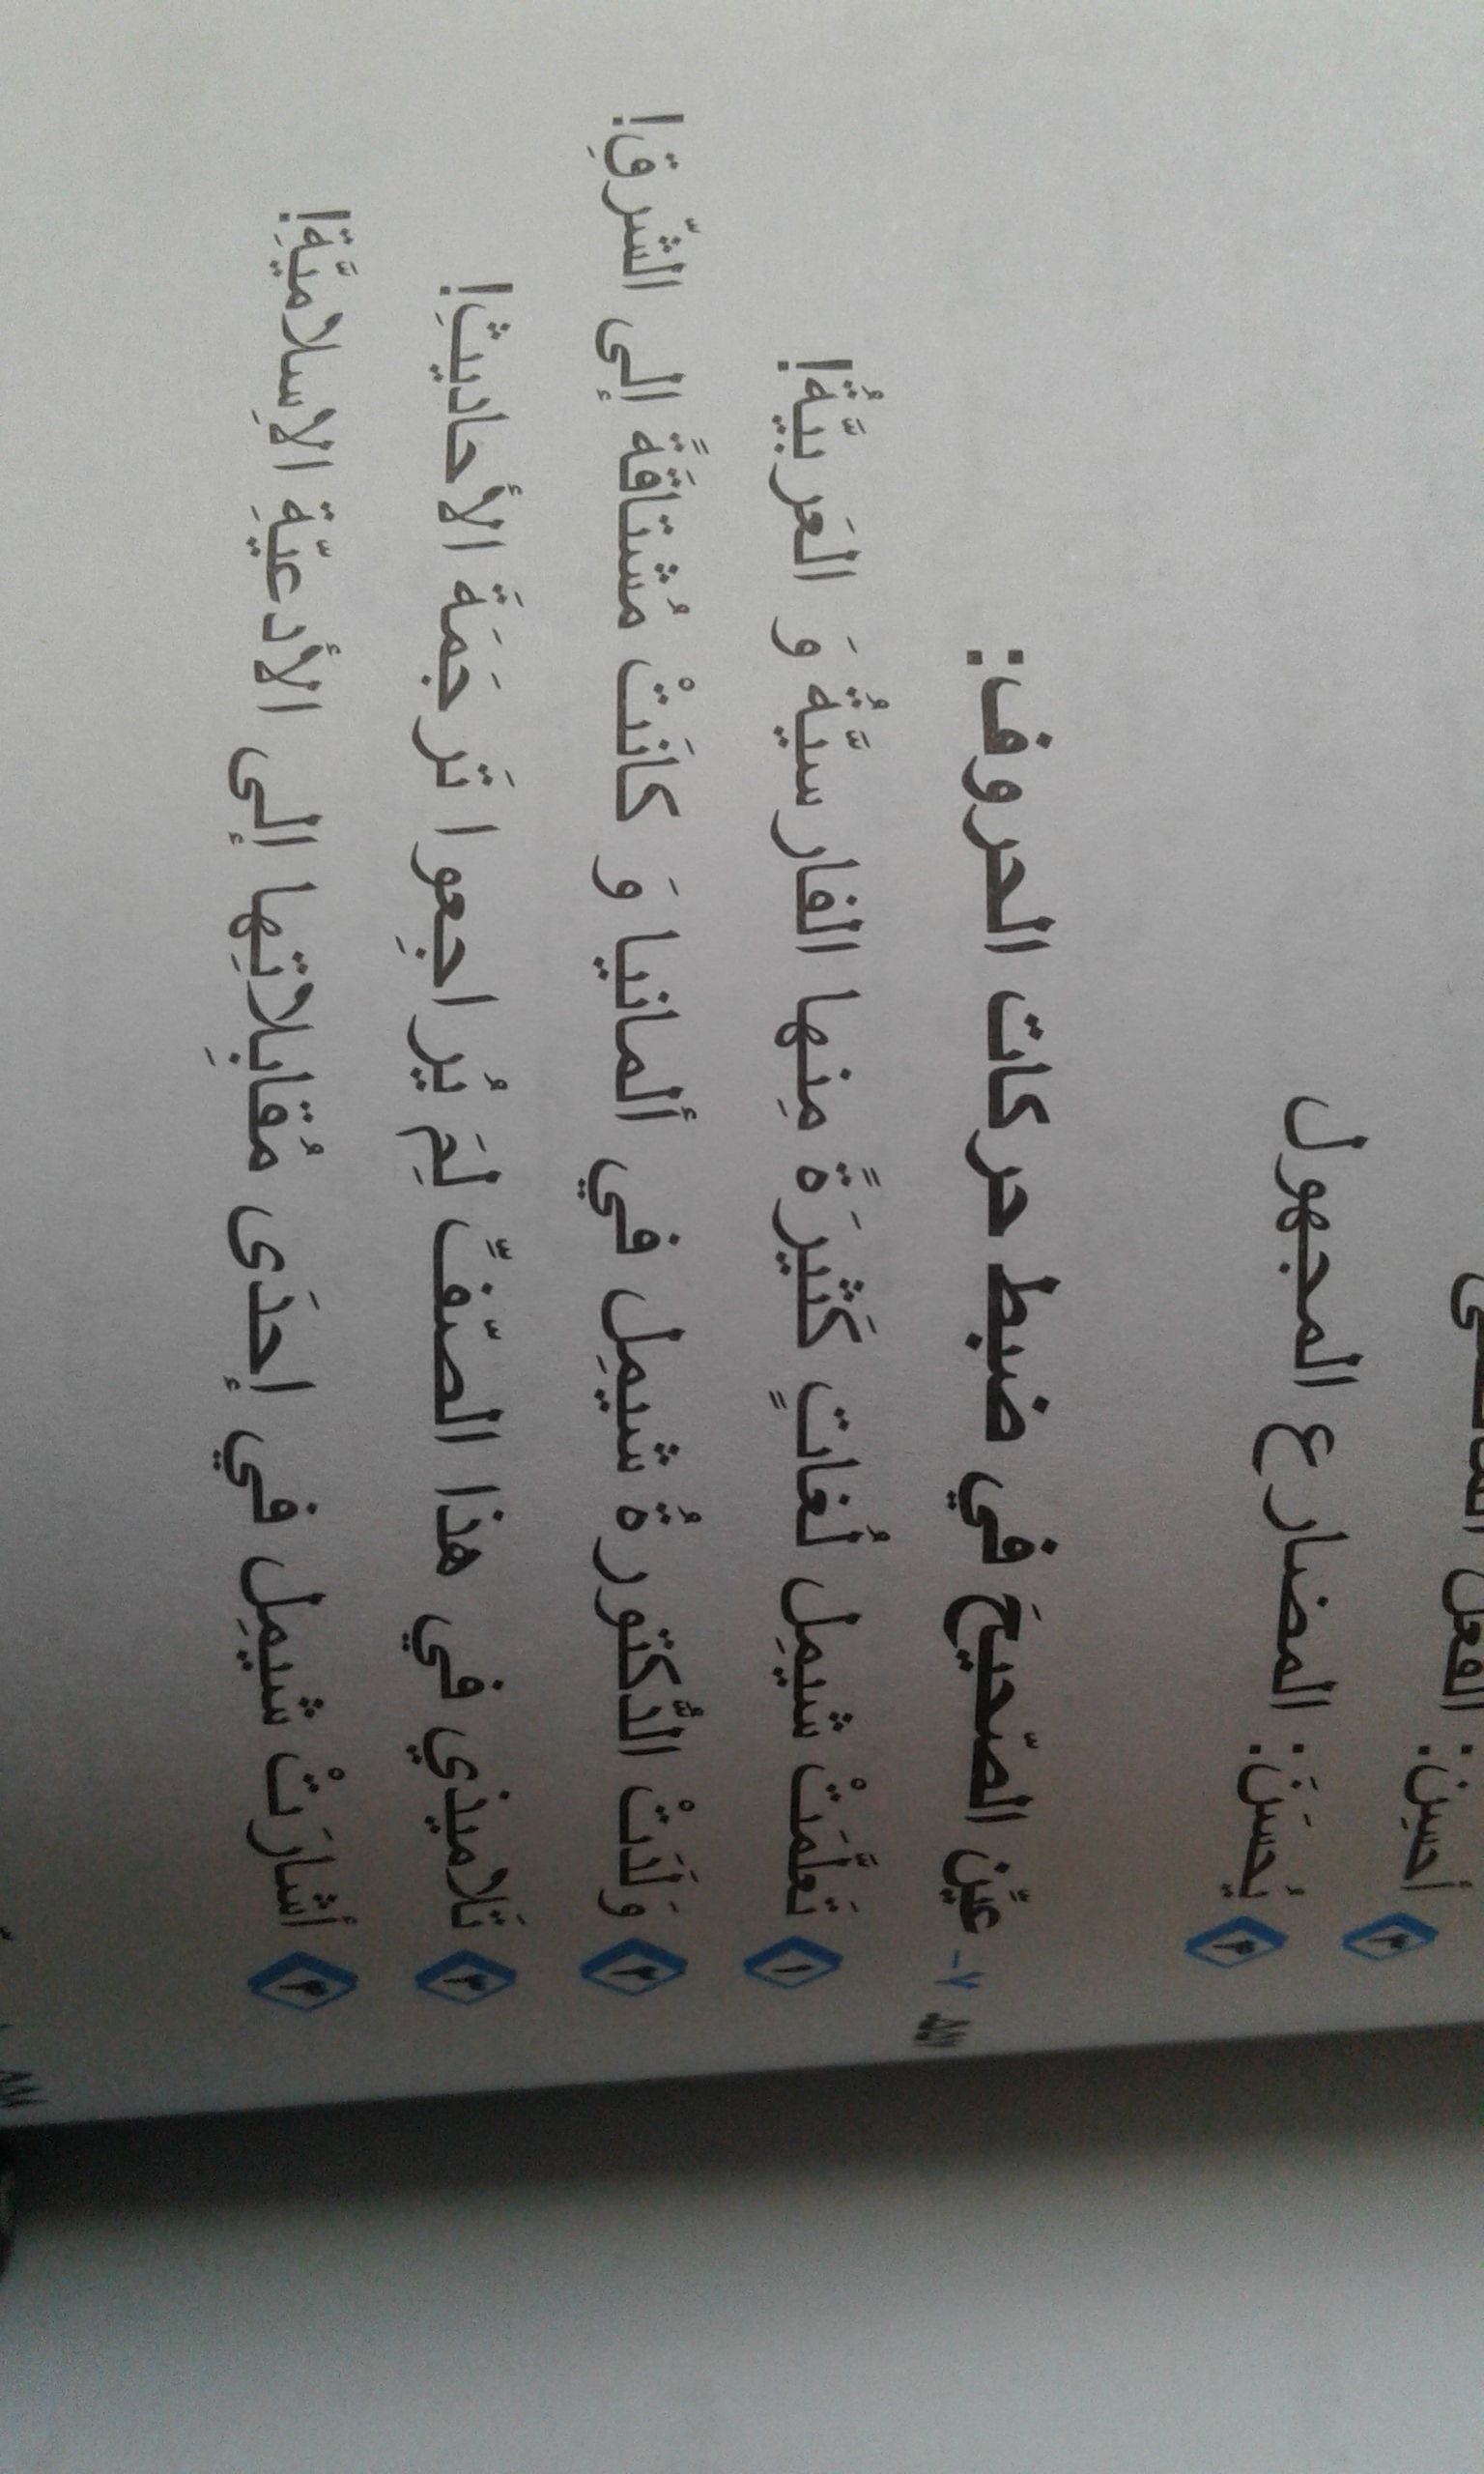 أحسِن: الفعل
يُحسَنُ: المضارع المجهول
۷- عيِّن الصّحيحَ في ضبط حركات الحروف:
۱ تَعلَّمَتْ شیمِل لُغاتٍ كَثيرَةً مِنها الفارسيَّةُ وَ العَربيَّةُ!
۲ وَلَدَتْ الدُّكتورةُ شيمِل في ألمانيا وَ كانَتْ مُشتاقَةً إلى الشّرقِ!
۳ تَلاميذي في هذا الصّفّ لِمَ يُراجِعوا تَرجَمَةَ الأحاديثِ!
۴ أشارَتْ شيمِل في إحدَى مُقابِلاتِها إلى الأدعيّةِ الاِسلاميَّةِ!